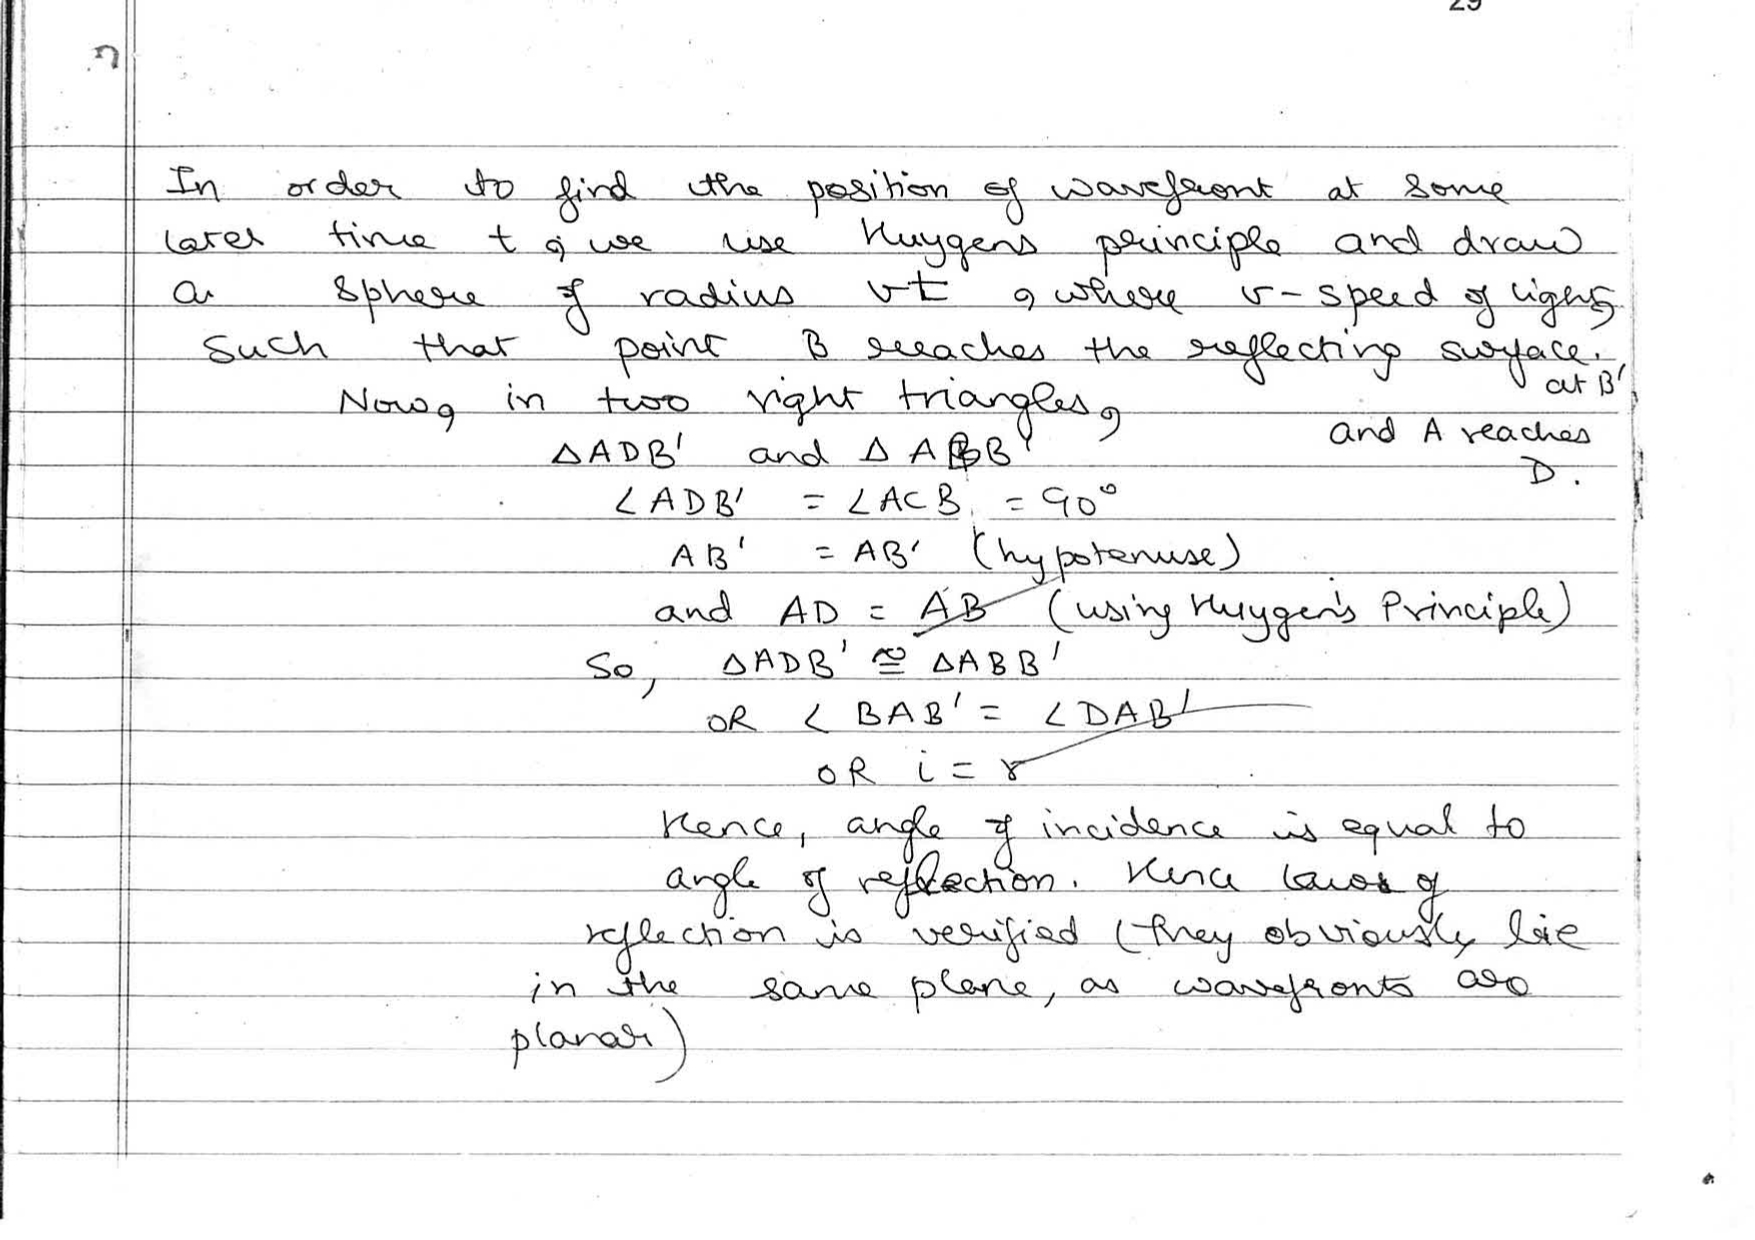 29
In order to find the position of wavefront at some
later time t, we use Huygens principle and draw
a sphere of radius vt, where v - speed of light,
such that point B reaches the reflecting surface.
at B'
and A reaches
D.
Now, in two right triangles,
△ADB' and △ABB'
∠ADB' = ∠ACB = 90°
AB' = AB' (hypotenuse)
and AD = A'B (using Huygen's Principle)
So, △ADB' ≅ △ABB'
OR ∠BAB' = ∠DAB'
OR i = r
Hence, angle of incidence is equal to
angle of reflection. Hence laws of
reflection is verified (they obviously lie
in the same plane, as wavefronts are
planar)